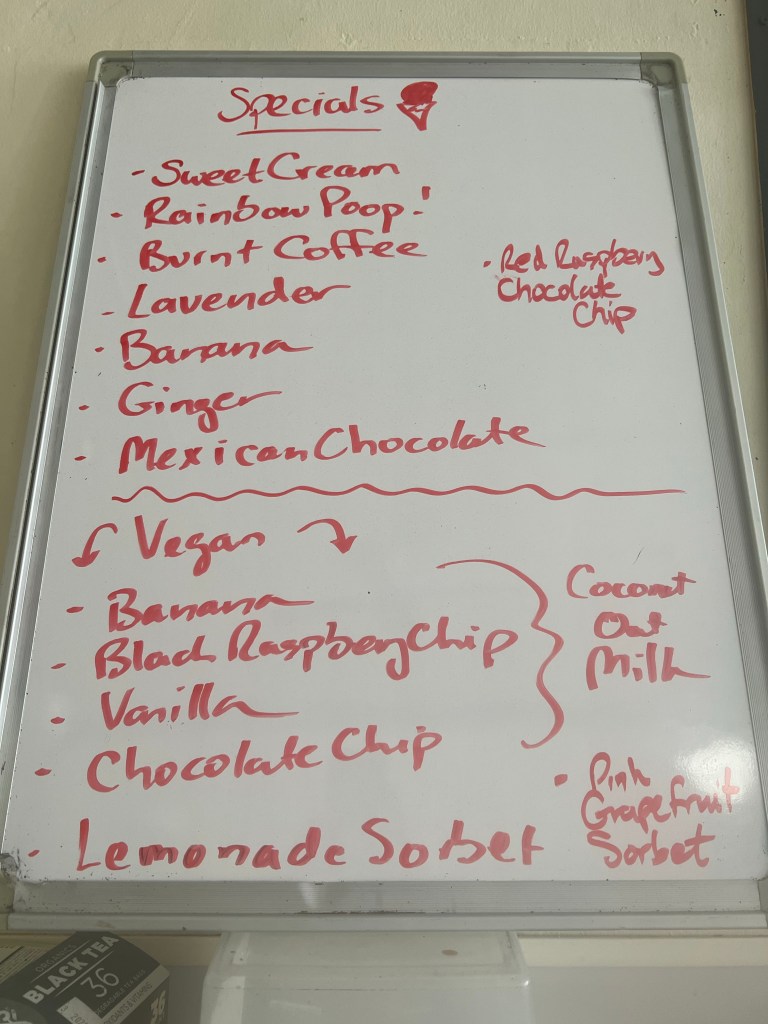 Specials
- Sweet Cream
- Rainbow Poop!
- Burnt Coffee
- Lavender
- Banana
- Ginger
- Mexican Chocolate
- Red Raspbery
Chocolate
Chip
Vegan
- Banana
- Black Raspbery Chip
- Vanilla
- Chocolate Chip
Coconut
Oat
Milk
- Lemonade Sorbet
- Pink
Grapefruit
Sorbet
ORGANIC
BLACK TEA
36